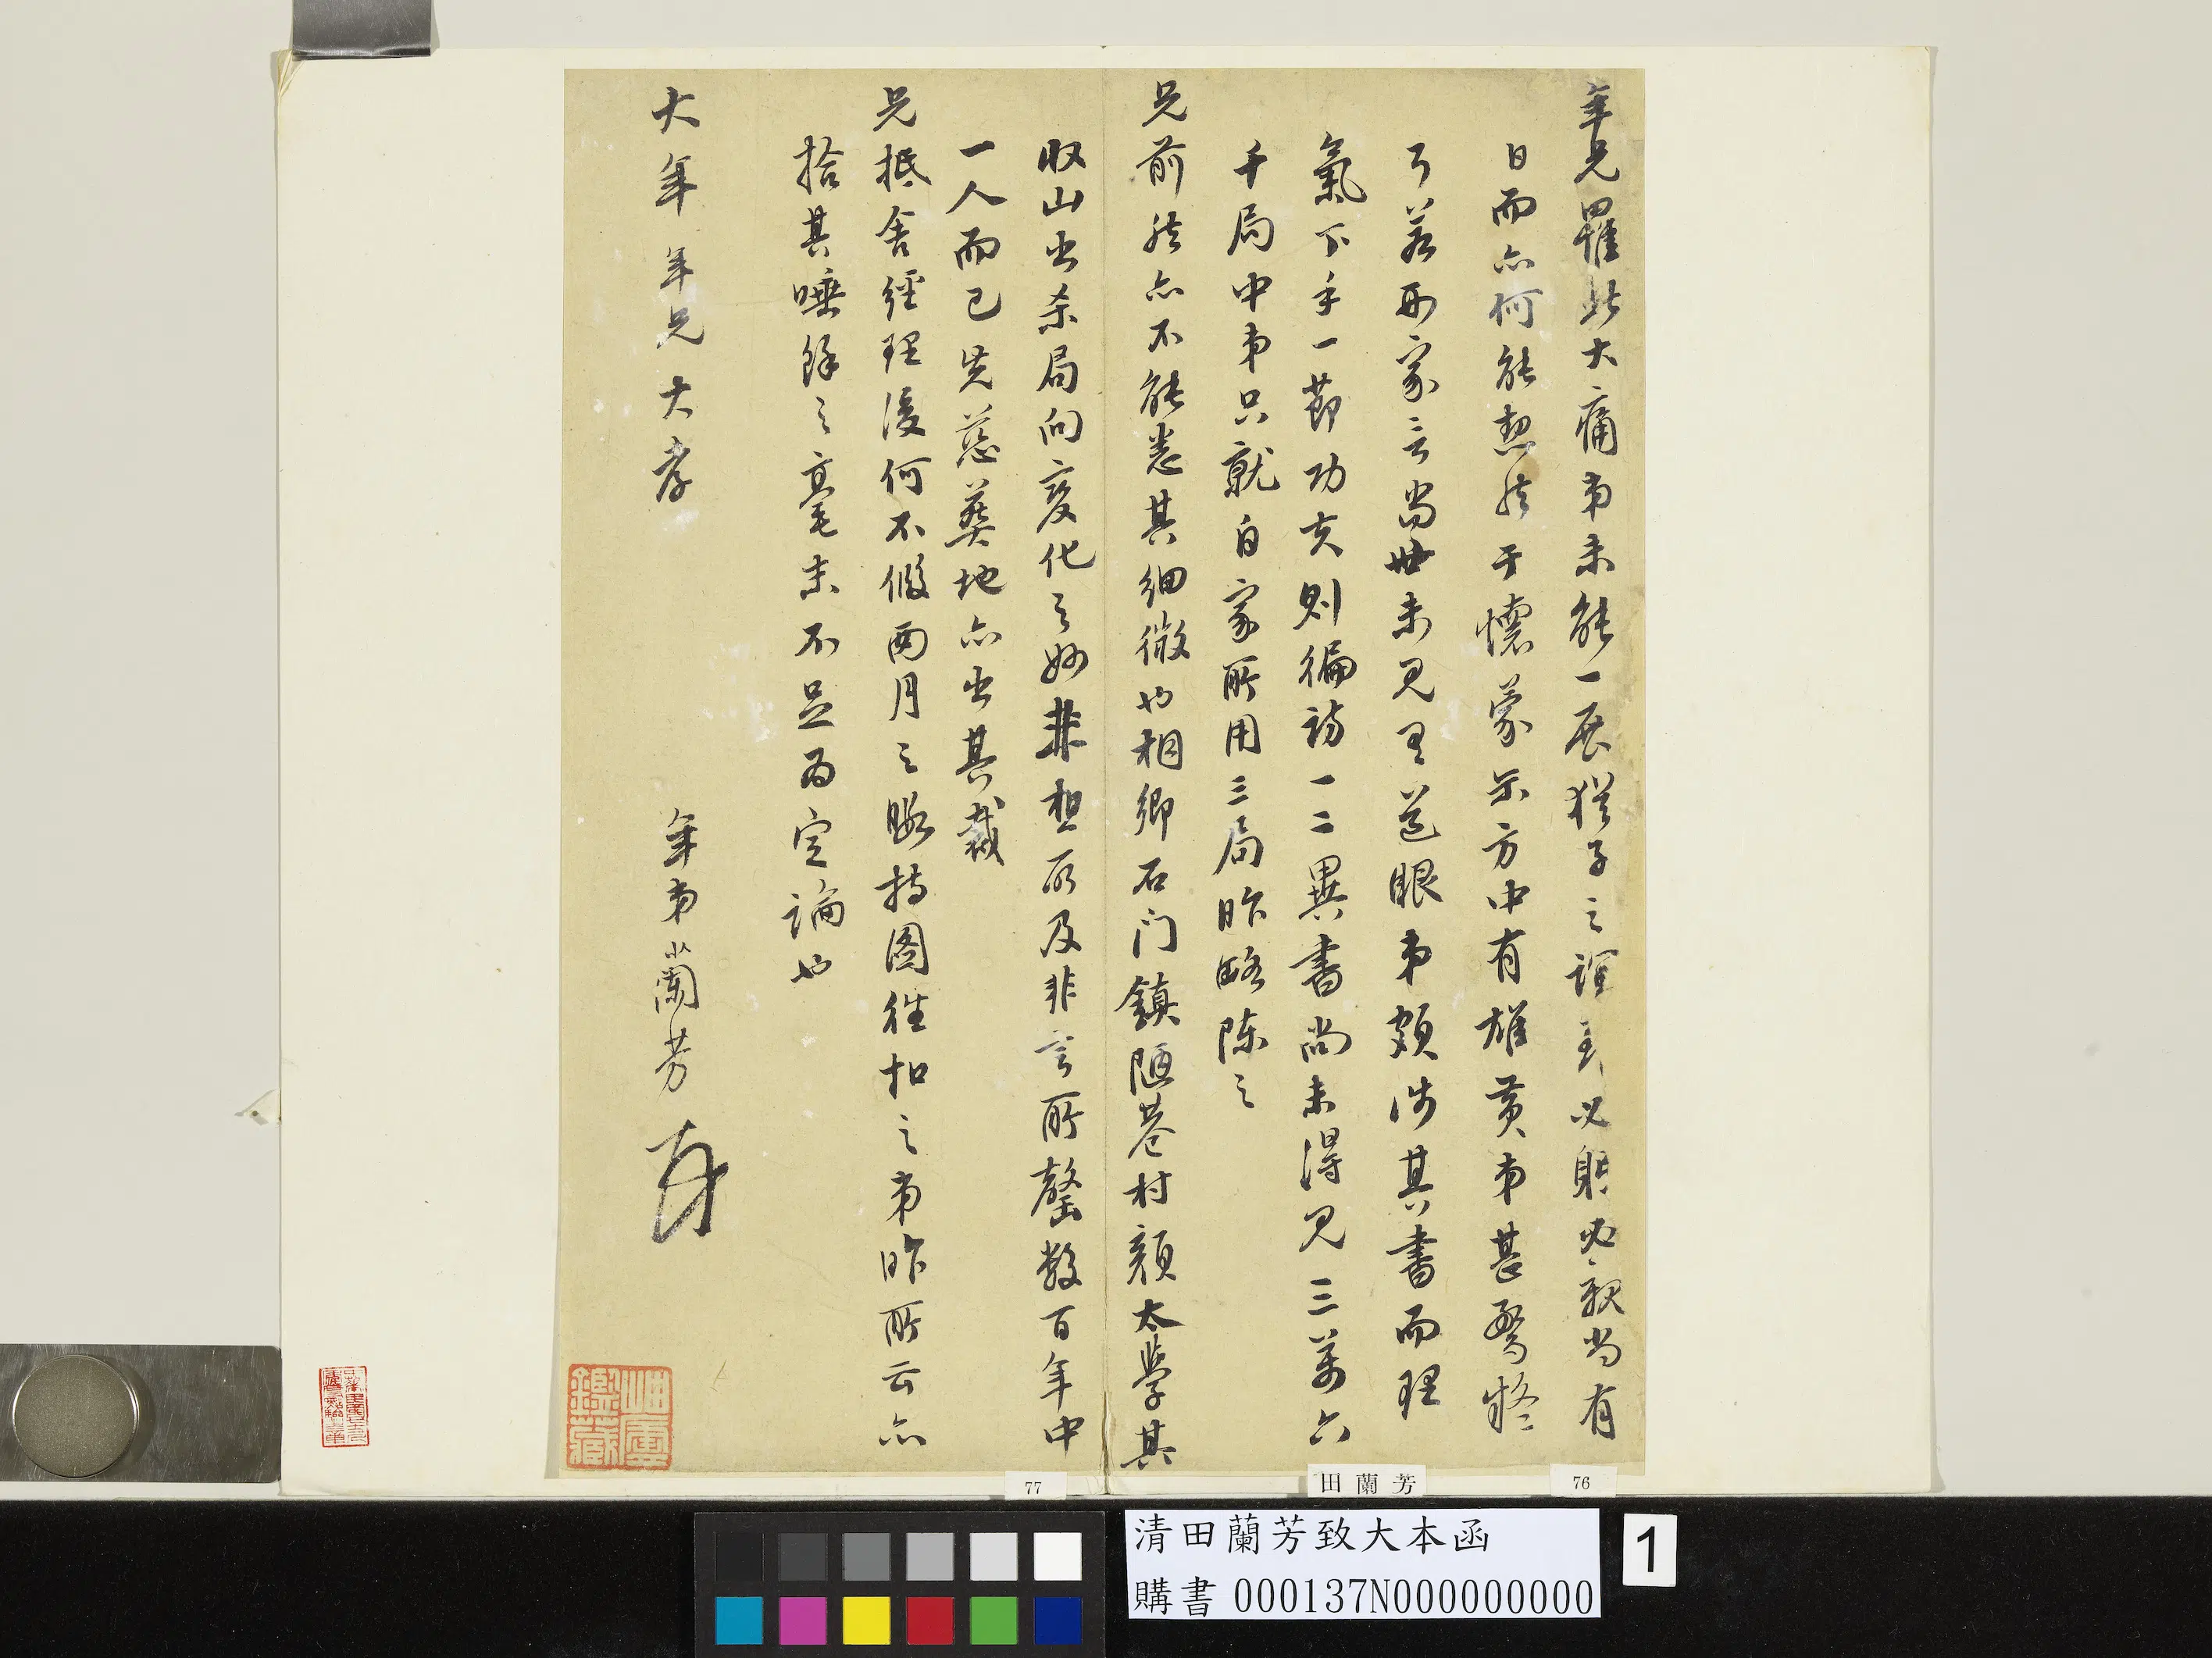 年兄罹此大痛弟未能一展猶子之誼至必躬必親尚有
日而亦何能恝然于懷蒙示方中有雄黃弟甚驚疑
了若形家言當世未見有道眼弟頗涉其書而理
氣下手一節功夫則徧訪一二異書尚未得見三萬六
千局中弟只就自家所用三局昨略陳之
兄前然亦不能悉其細微也相鄉石門鎮陋巷村顏太學其
收山出煞局向變化之妙非想所及非言所罄數百年中
一人而已先慈葬地亦出其裁
兄抵舍經理後何不假兩月之暇持圖往扣之弟昨所云亦
拾其唾餘之毫末不足為定論也
大年年兄大孝
年弟蘭芳
岫雲鑑藏
77
田蘭芳
76
清田蘭芳致大本函
購書000137N000000000
1